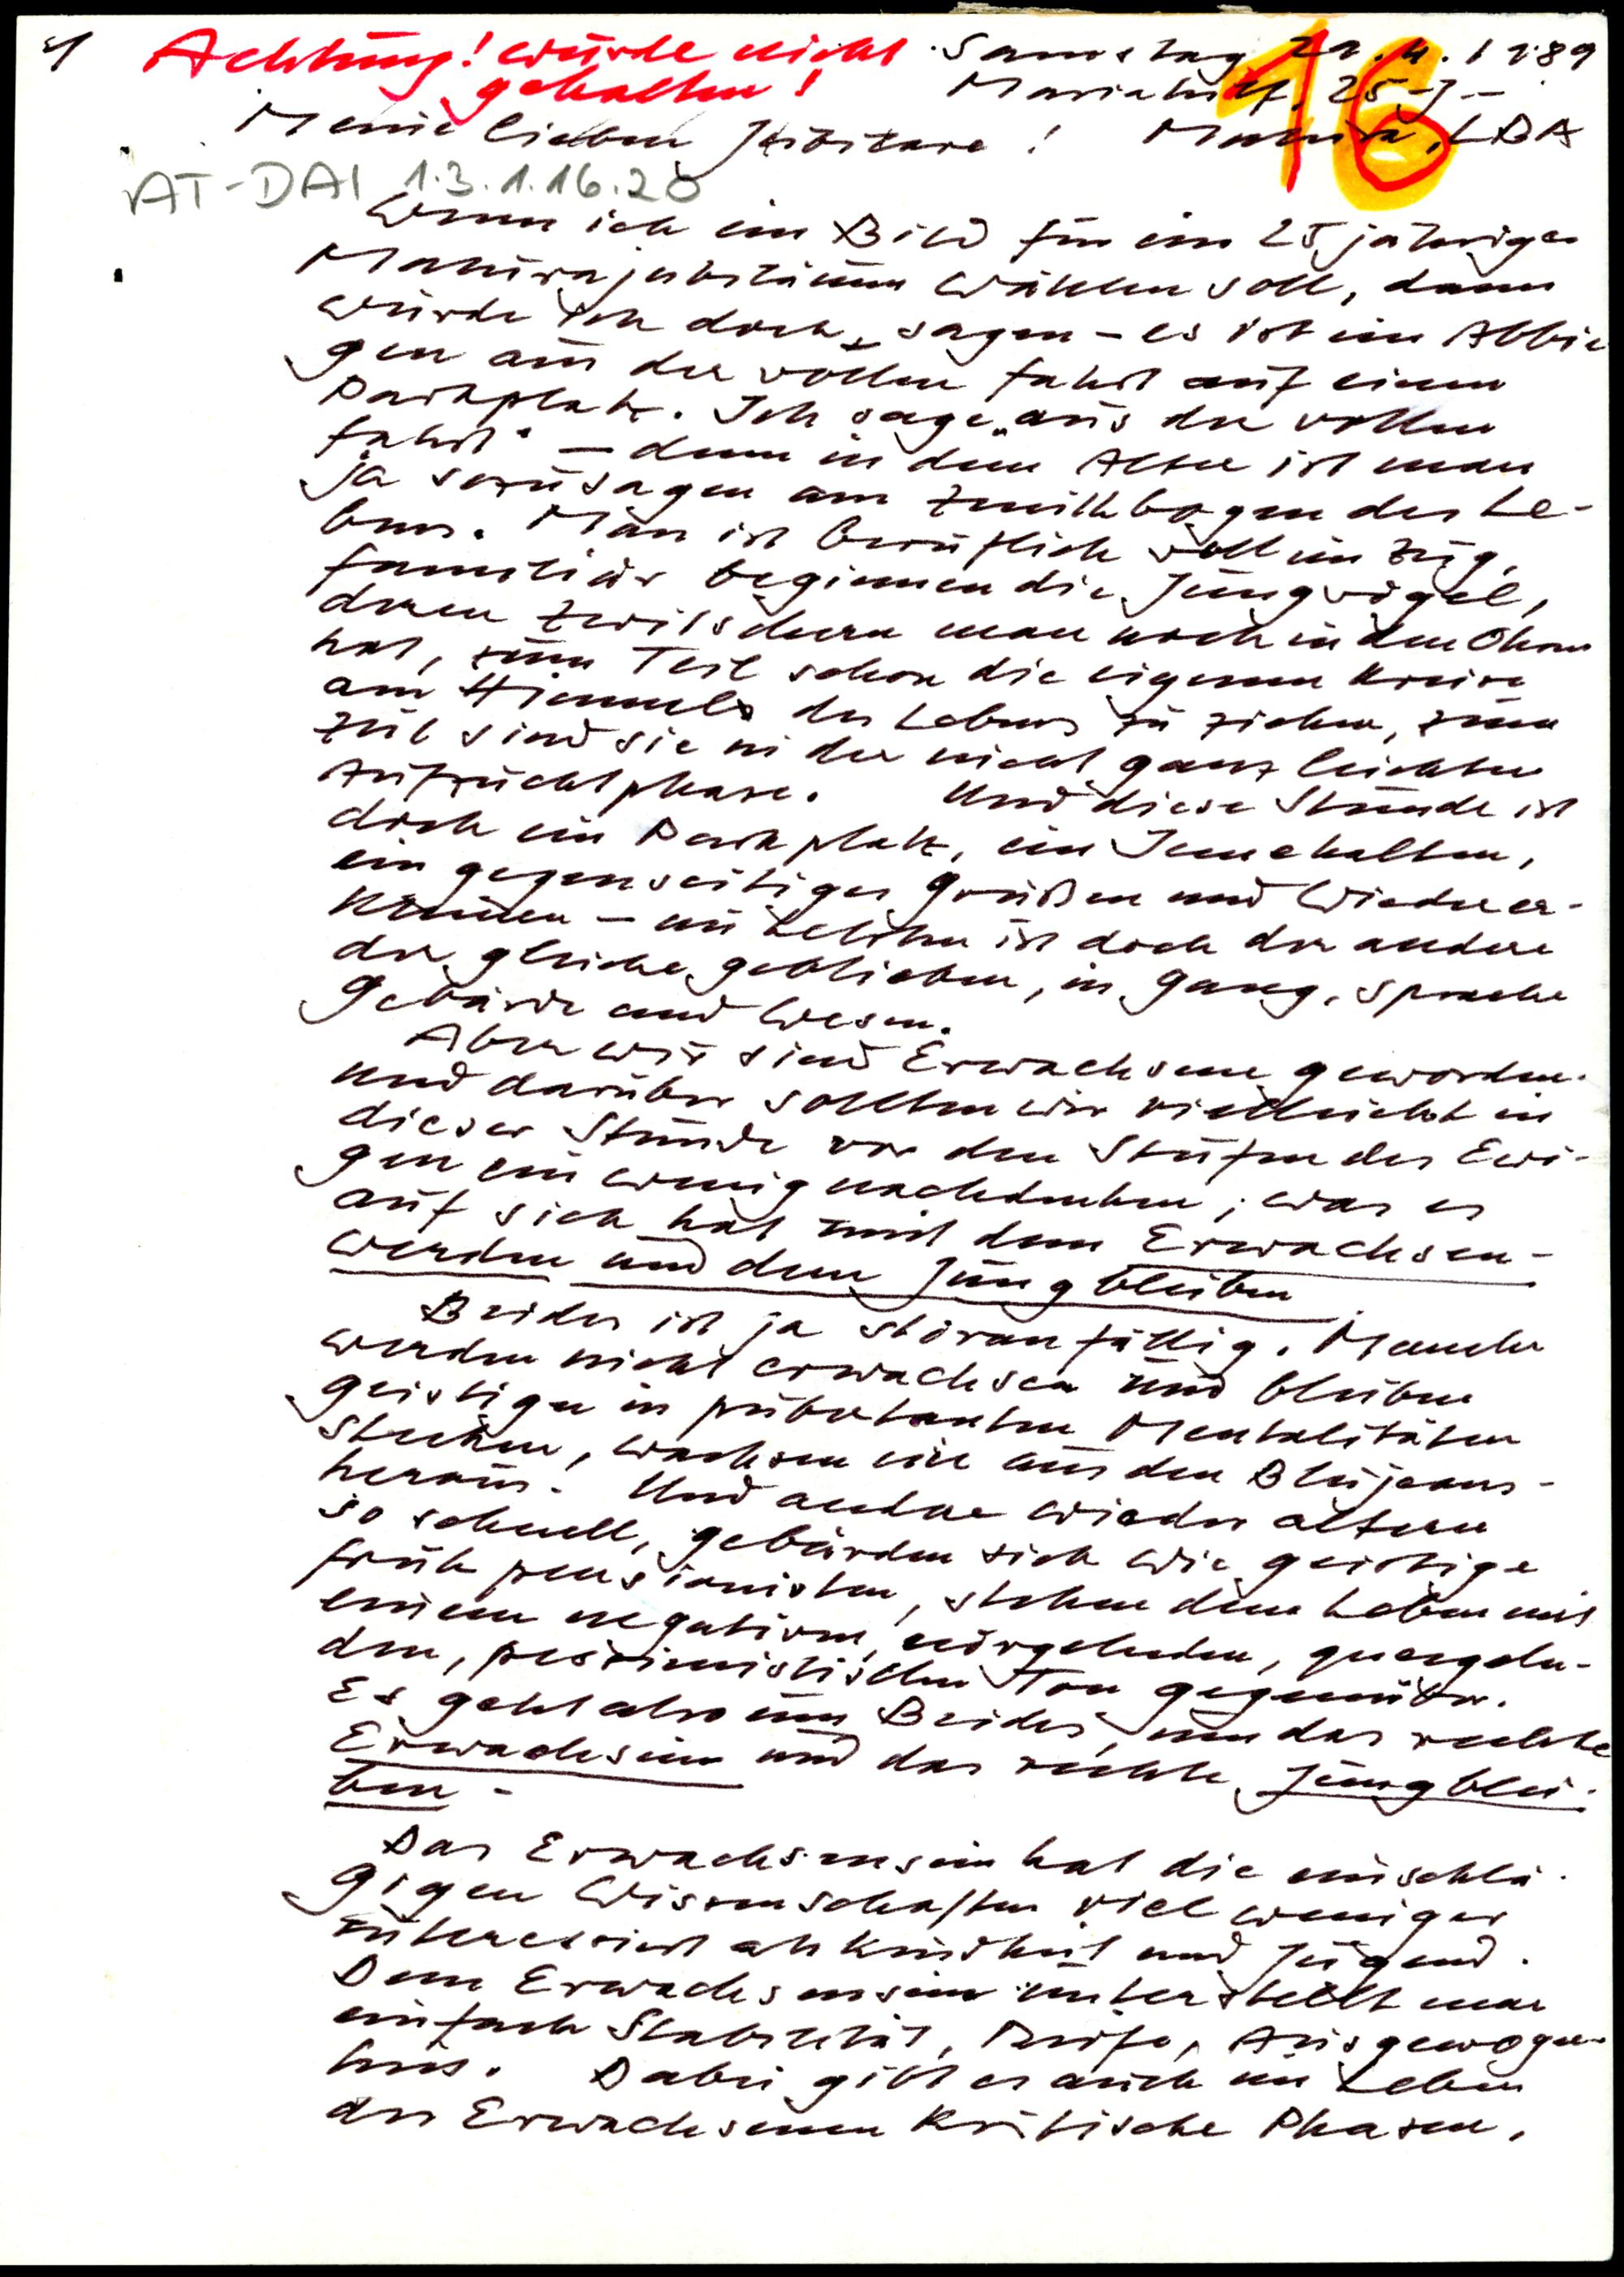 1)
Achtung! wurde nicht
gehalten!
Samstag 29.4.1989
Mariahilf, 25 J-
Matura, LBA
16
Meine lieben Jubilare!
AT-DAI 1.3.1.16.20
Wenn ich ein Bild für ein 25 jähriges
Maturajubiläum wählen soll, dann
würde ich doch sagen - es ist ein Abbie
gen aus der vollen Fahrt auf einen
Parkplatz. Ich sage „aus der vollen
Fahrt" - denn in dem Alter ist man
ja sozusagen am Zenithbogen des Le-
bens. Man ist beruflich voll im Zug,
familiär beginnen die Jungvögel,
deren Zwitschern man noch in den Ohren
hat, zum Teil schon die eigenen Kreise
am Himmel des Lebens zu ziehen, zum
Teil sind sie in der nicht ganz leichten
Aufzuchtphase. Und diese Stunde ist
doch ein Parkplatz, ein Innehalten,
ein gegenseitiges Grüßen und Wiederer-
kennen - im Letzten ist doch der andere
der gleiche geblieben, in Gang, Sprache
Gebärde und Wesen.
Aber wir sind Erwachsene geworden.
Und darüber sollten wir vielleicht in
dieser Stunde vor den Stufen des Ewi-
gen ein wenig nachdenken, was es
auf sich hat mit dem Erwachsen-
werden und dem Jungbleiben
Beides ist ja störanfällig. Manche
werden nicht erwachsen und bleiben
geistiger in pubertanten Mentalitäten
stecken, wachsen nie aus den Blujeans
heraus. Und andere wieder altern
so schnell, gebärden sich wie geistige
Frühpensionisten, stehen dem Leben mit
einem negativen, nörgelnden, quengeln-
den, pessimistischen Ton gegenüber.
Es geht also um Beides, um das rechte
Erwachsein und das rechte Jungblei-
ben -
Das Erwachsensein hat die einschlä-
gigen Wissenschaften viel weniger
interessiert als Kindheit und Jugend.
Dem Erwachsensein unterstellt man
einfach Stabilität, Reife, Ausgewogen-
heit. Dabei gibt es auch im Leben
des Erwachsenen kritische Phasen,